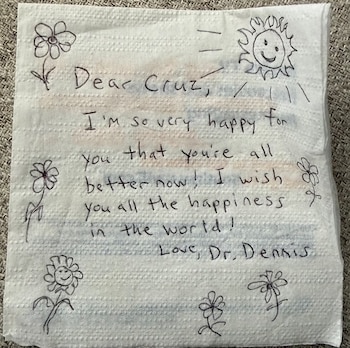 Dear Cruz,
I'm so very happy for
you that you're all
better now! I wish
you all the happiness
in the world!
Love, Dr. Dennis